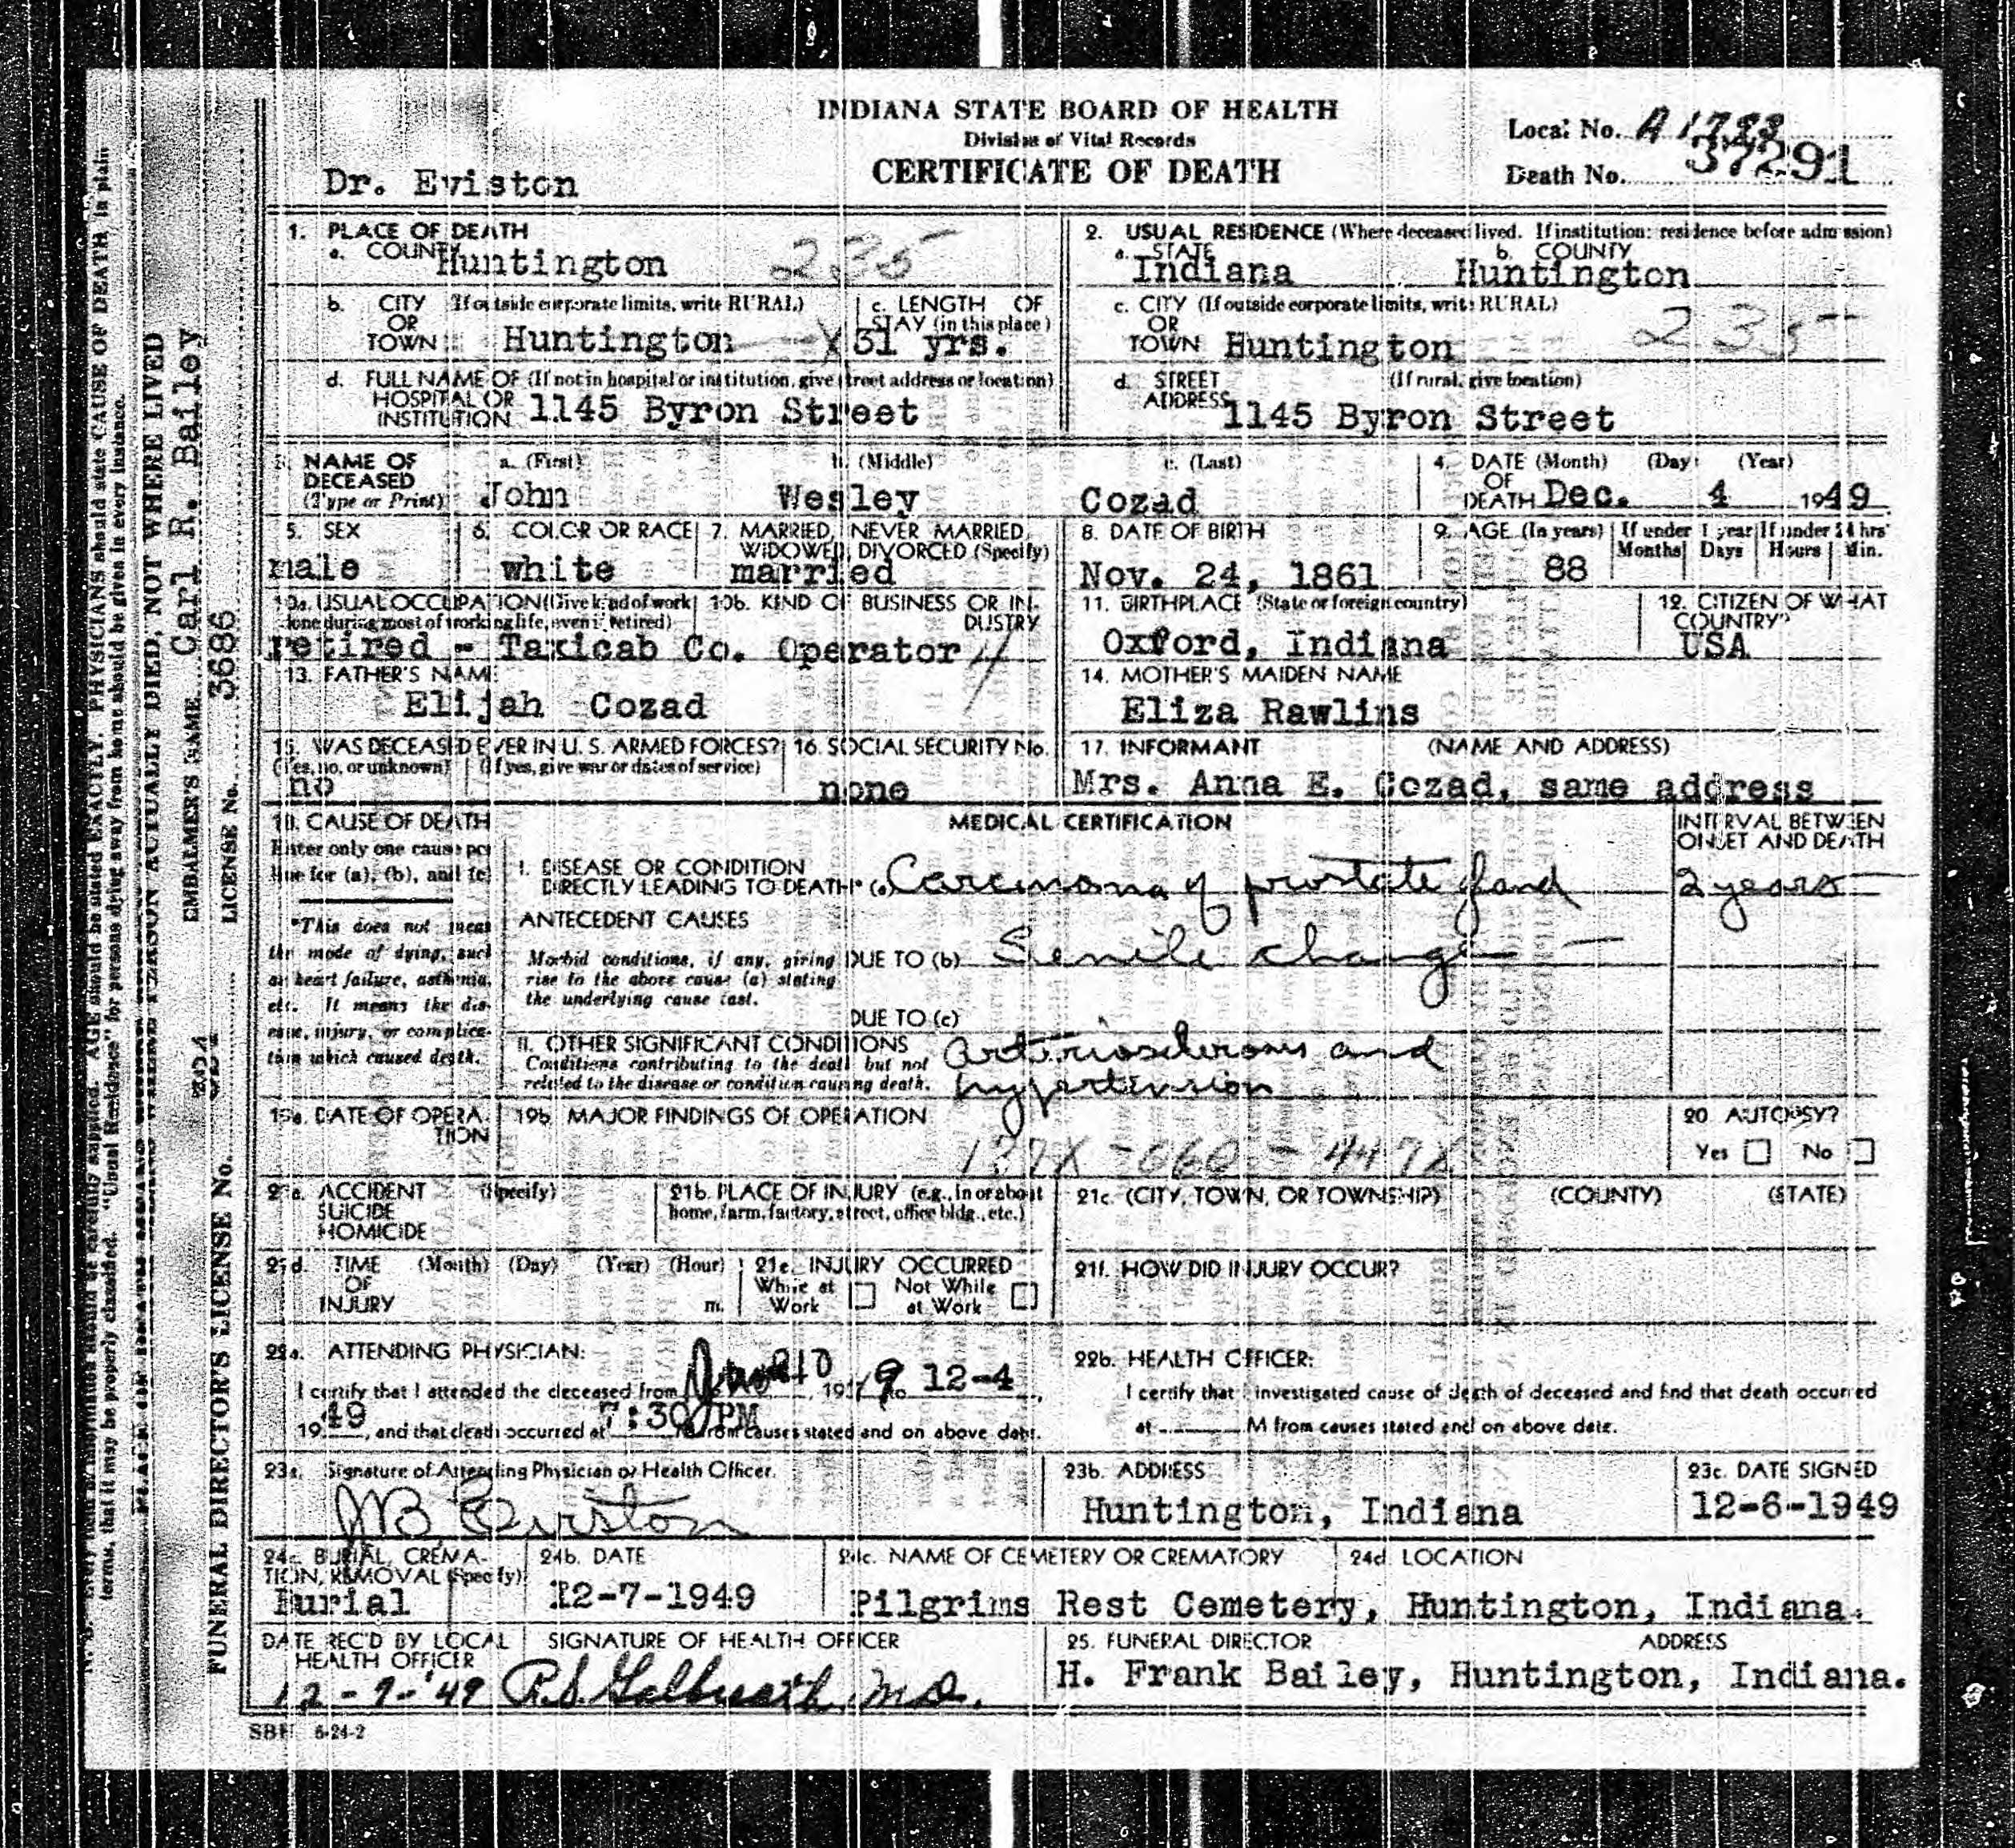 INDIANA STATE BOARD OF HEALTH
Division of Vital Records
CERTIFICATE OF DEATH
Local No. A 1793
Death No. 37291
Dr. Eviston
1. PLACE OF DEATH
a. COUNTY Huntington 235
2. USUAL RESIDENCE (Where deceased lived. If institution: residence before admission)
a. STATE Indiana b. COUNTY Huntington
b. CITY OR TOWN (If outside corporate limits, write RURAL) Huntington
c. LENGTH OF STAY (in this place) 31 yrs.
c. CITY OR TOWN (If outside corporate limits, write RURAL) Huntington 235
d. FULL NAME OF HOSPITAL OR INSTITUTION (If not in hospital or institution, give street address or location) 1145 Byron Street
d. STREET ADDRESS (If rural, give location) 1145 Byron Street
3. NAME OF DECEASED (Type or Print) a. (First) John b. (Middle) Wesley c. (Last) Cozad
4. DATE OF DEATH (Month) (Day) (Year) Dec. 4 1949
5. SEX male
6. COLOR OR RACE white
7. MARRIED, NEVER MARRIED, WIDOWED, DIVORCED (Specify) married
8. DATE OF BIRTH Nov. 24, 1861
9. AGE (In years) 88 If under 1 year Months Days If under 24 hrs Hours Min.
10a. USUAL OCCUPATION (Give kind of work done during most of working life, even if retired) 10b. KIND OF BUSINESS OR INDUSTRY
retired - Taxicab Co. Operator
11. BIRTHPLACE (State or foreign country) Oxford, Indiana
12. CITIZEN OF WHAT COUNTRY? USA
13. FATHER'S NAME Elijah Cozad
14. MOTHER'S MAIDEN NAME Eliza Rawlins
15. WAS DECEASED EVER IN U. S. ARMED FORCES? (Yes, no, or unknown) (If yes, give war or dates of service) no
16. SOCIAL SECURITY No. none
17. INFORMANT (NAME AND ADDRESS) Mrs. Anna E. Cozad, same address
18. CAUSE OF DEATH
Enter only one cause per line for (a), (b), and (c)
*This does not mean the mode of dying, such as heart failure, asthenia, etc. It means the disease, injury, or complication which caused death.
MEDICAL CERTIFICATION
INTERVAL BETWEEN ONSET AND DEATH
I. DISEASE OR CONDITION DIRECTLY LEADING TO DEATH* (a) Carcinoma of prostate gland 2 years
ANTECEDENT CAUSES
Morbid conditions, if any, giving rise to the above cause (a) stating the underlying cause last.
DUE TO (b) Senile change
DUE TO (c)
II. OTHER SIGNIFICANT CONDITIONS
Conditions contributing to the death but not related to the disease or condition causing death.
arteriosclerosis and hypertension
19a. DATE OF OPERATION
19b. MAJOR FINDINGS OF OPERATION
177X - 060 - 447X
20. AUTOPSY? Yes No
21a. ACCIDENT SUICIDE HOMICIDE (Specify)
21b. PLACE OF INJURY (e.g., in or about home, farm, factory, street, office bldg., etc.)
21c. (CITY, TOWN, OR TOWNSHIP) (COUNTY) (STATE)
21d. TIME OF INJURY (Month) (Day) (Year) (Hour) m.
21e. INJURY OCCURRED While at Work Not While at Work
21f. HOW DID INJURY OCCUR?
22a. ATTENDING PHYSICIAN:
I certify that I attended the deceased from 19 to 12-4,
1949, and that death occurred at 7:30 PM from causes stated and on above date.
22b. HEALTH OFFICER:
I certify that I investigated cause of death of deceased and find that death occurred
at M from causes stated and on above date.
23a. Signature of Attending Physician or Health Officer.
JB Eviston
23b. ADDRESS Huntington, Indiana
23c. DATE SIGNED 12-6-1949
24a. BURIAL, CREMATION, REMOVAL (Specify) Burial
24b. DATE 12-7-1949
24c. NAME OF CEMETERY OR CREMATORY 24d. LOCATION
Pilgrims Rest Cemetery, Huntington, Indiana.
DATE REC'D BY LOCAL HEALTH OFFICER 12-7-'49
SIGNATURE OF HEALTH OFFICER R.S. Galbreath, M.D.
25. FUNERAL DIRECTOR ADDRESS
H. Frank Bailey, Huntington, Indiana.
SBH 6-24-2
FUNERAL DIRECTOR'S LICENSE No.
EMBALMER'S NAME Carl R. Bailey
LICENSE No. 3686
ACTUALLY DIED, NOT WHERE LIVED
N. B. Every item of information should be carefully supplied. AGE should be stated EXACTLY. PHYSICIANS should state CAUSE OF DEATH in plain
terms, that it may be properly classified. "Usual Residence" for persons dying away from home should be given in every instance.